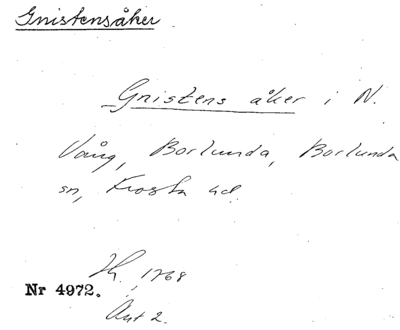 Gnistensåker
Gnistens åker i N.
Vång, Borlunda, Borlunda
sn, Frosta hd
Ht. 1768
Nr 4972.
Akt 2.